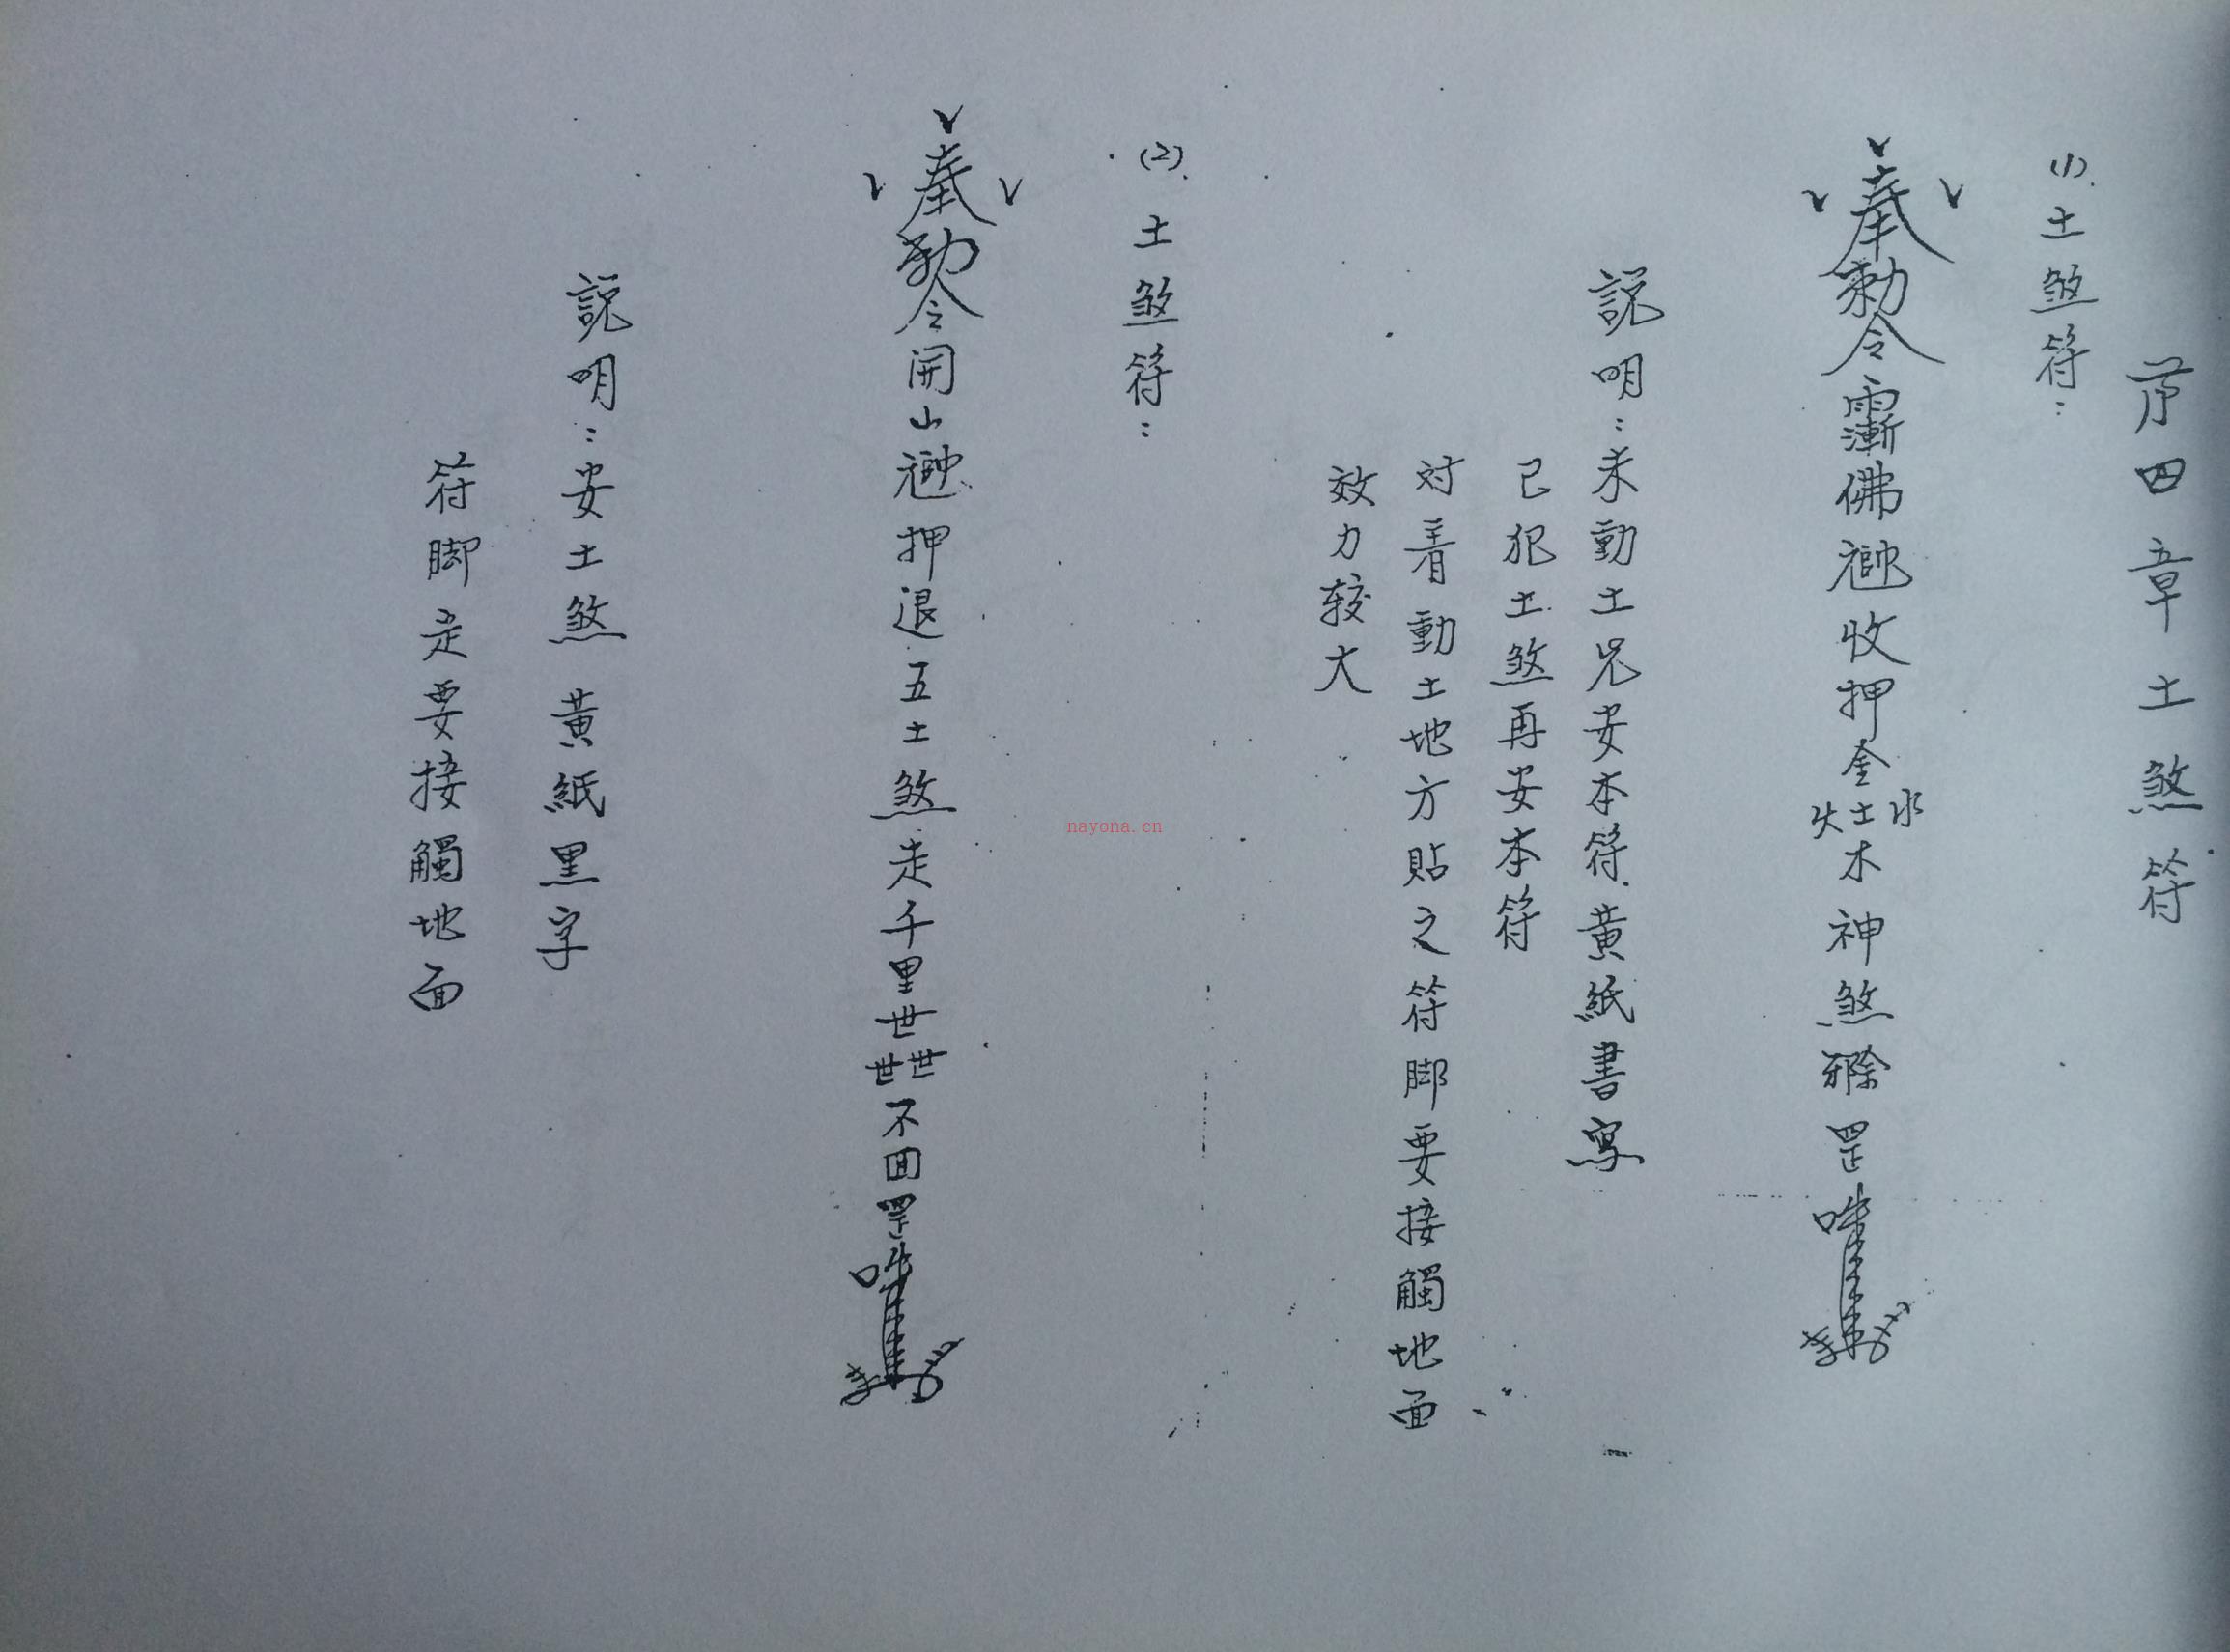 芧四章土煞符
(1).土煞符:
奉勅令佛收押金水火土木神煞罡
説明:未動土兄安本符.黄紙書寫
已犯土煞再安本符
対着動土地方貼之符脚要接觸地面
效力較大
(2).土煞符:
奉勅令開山押退五土煞走千里世世世不回罡
説明:安土煞 黄紙黑字
符脚走要接觸地面
nayona.cn